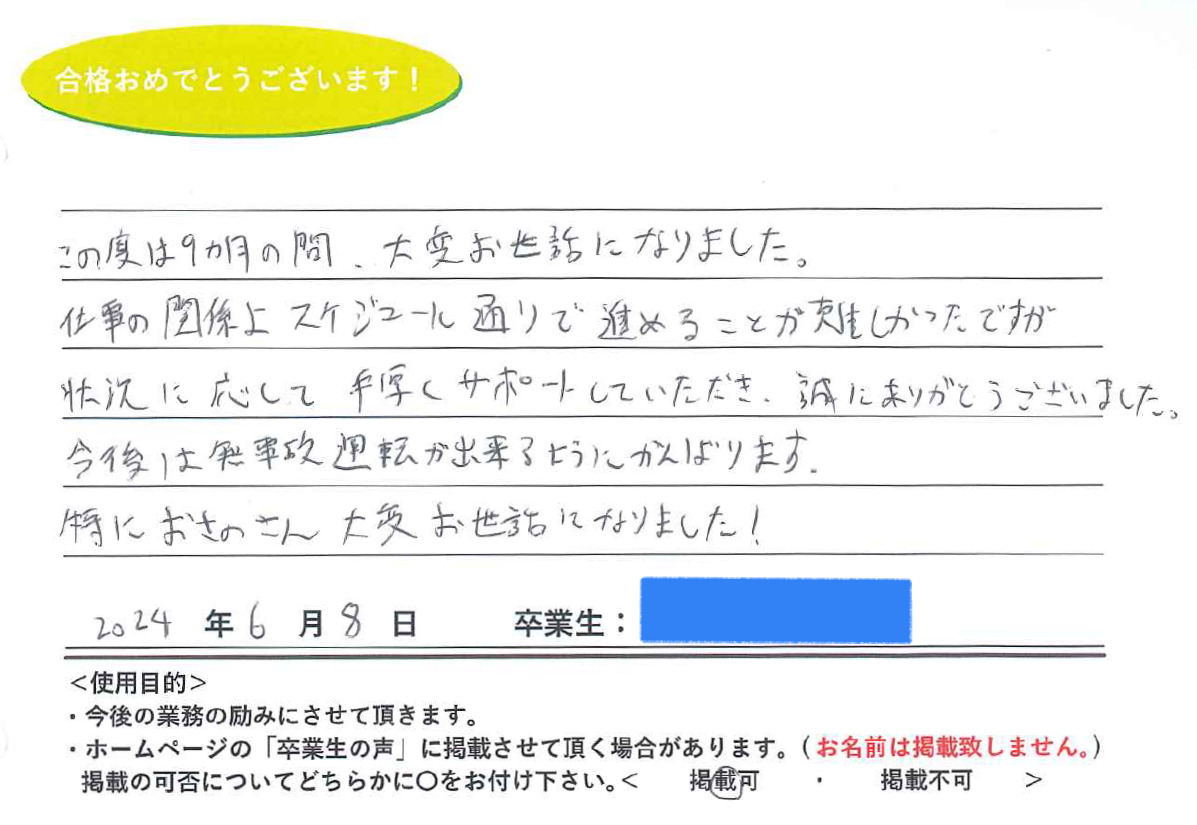 合格おめでとうございます！
この度は9カ月の間、大変お世話になりました。
仕事の関係上スケジュール通りで進めることが難しかったですが
状況に応じて手厚くサポートしていただき、誠にありがとうございました。
今後は無事故運転が出来るようにがんばります。
特におさのさん大変お世話になりました！
2024年6月8日 卒業生：
＜使用目的＞
・今後の業務の励みにさせて頂きます。
・ホームページの「卒業生の声」に掲載させて頂く場合があります。（お名前は掲載致しません。）
掲載の可否についてどちらかに〇をお付け下さい。＜ 掲載可 ・ 掲載不可 ＞